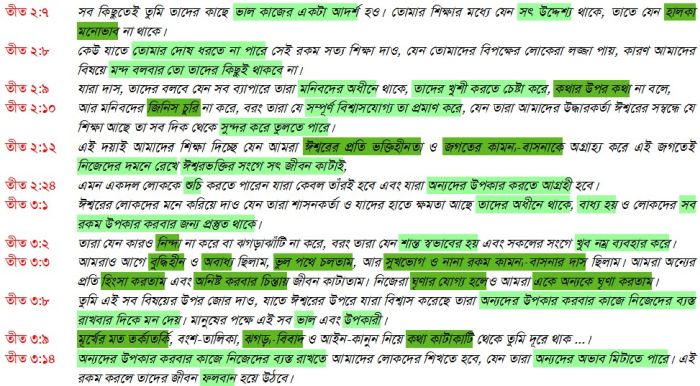 তীত ২:৭ সব কিছুতেই তুমি তাদের কাছে ভাল কাজের একটা আদর্শ হও। তোমার শিক্ষার মধ্যে যেন সৎ উদ্দেশ্য থাকে, তাতে যেন হালকা
মনোভাব না থাকে।
তীত ২:৮ কেউ যাতে তোমার দোষ ধরতে না পারে সেই রকম সত্য শিক্ষা দাও, যেন তোমাদের বিপক্ষের লোকেরা লজ্জা পায়, কারণ আমাদের
বিষয়ে মন্দ বলবার তো তাদের কিছুই থাকবে না।
তীত ২:৯ যারা দাস, তাদের বলবে যেন সব ব্যাপারে তারা মনিবদের অধীনে থাকে, তাদের খুশী করতে চেষ্টা করে, কথার উপর কথা না বলে,
তীত ২:১০ আর মনিবদের জিনিস চুরি না করে, বরং তারা যে সম্পূর্ণ বিশ্বাসযোগ্য তা প্রমাণ করে, যেন তারা আমাদের উদ্ধারকর্তা ঈশ্বরের সম্বন্ধে যে
শিক্ষা আছে তা সব দিক থেকে সুন্দর করে তুলতে পারে।
তীত ২:১২ এই দয়াই আমাদের শিক্ষা দিচ্ছে যেন আমরা ঈশ্বরের প্রতি ভক্তিহীনতা ও জগতের কামনা-বাসনাকে অগ্রাহ্য করে এই জগতেই
নিজেদের দমনে রেখে ঈশ্বরভক্তির সংগে সৎ জীবন কাটাই,
তীত ২:২৪ এমন একদল লোককে শুচি করতে পারেন যারা কেবল তাঁরই হবে এবং যারা অন্যদের উপকার করতে আগ্রহী হবে।
তীত ৩:১ ঈশ্বরের লোকদের মনে করিয়ে দাও যেন তারা শাসনকর্তা ও যাদের হাতে ক্ষমতা আছে তাদের অধীনে থাকে, বাধ্য হয় ও লোকদের সব
রকম উপকার করবার জন্য প্রস্তুত থাকে।
তীত ৩:২ তারা যেন কারও নিন্দা না করে বা ঝগড়াঝাঁটি না করে, বরং তারা যেন শান্ত স্বভাবের হয় এবং সকলের সংগে খুব নম্র ব্যবহার করে।
তীত ৩:৩ আমরাও আগে বুদ্ধিহীন ও অবাধ্য ছিলাম, ভুল পথে চলতাম, আর সুখভোগ ও নানা রকম কামনা-বাসনার দাস ছিলাম। আমরা অন্যের
প্রতি হিংসা করতাম এবং অনিষ্ট করবার চিন্তায় জীবন কাটাতাম। নিজেরা ঘৃণার যোগ্য হলেও আমরা একে অন্যকে ঘৃণা করতাম।
তীত ৩:৮ তুমি এই সব বিষয়ের উপর জোর দাও, যাতে ঈশ্বরের উপরে যারা বিশ্বাস করেছে তারা অন্যদের উপকার করবার কাজে নিজেদের ব্যস্ত
রাখবার দিকে মন দেয়। মানুষের পক্ষে এই সব ভাল এবং উপকারী।
তীত ৩:৯ মূর্খের মত তর্কাতর্কি, বংশ-তালিকা, ঝগড়া-বিবাদ ও আইন-কানুন নিয়ে কথা কাটাকাটি থেকে তুমি দূরে থাক ...।
তীত ৩:১৪ অন্যদের উপকার করবার কাজে নিজেদের ব্যস্ত রাখতে আমাদের লোকদের শিখতে হবে, যেন তারা অন্যদের অভাব মিটাতে পারে। এই
রকম করলে তাদের জীবন ফলবান হয়ে উঠবে।